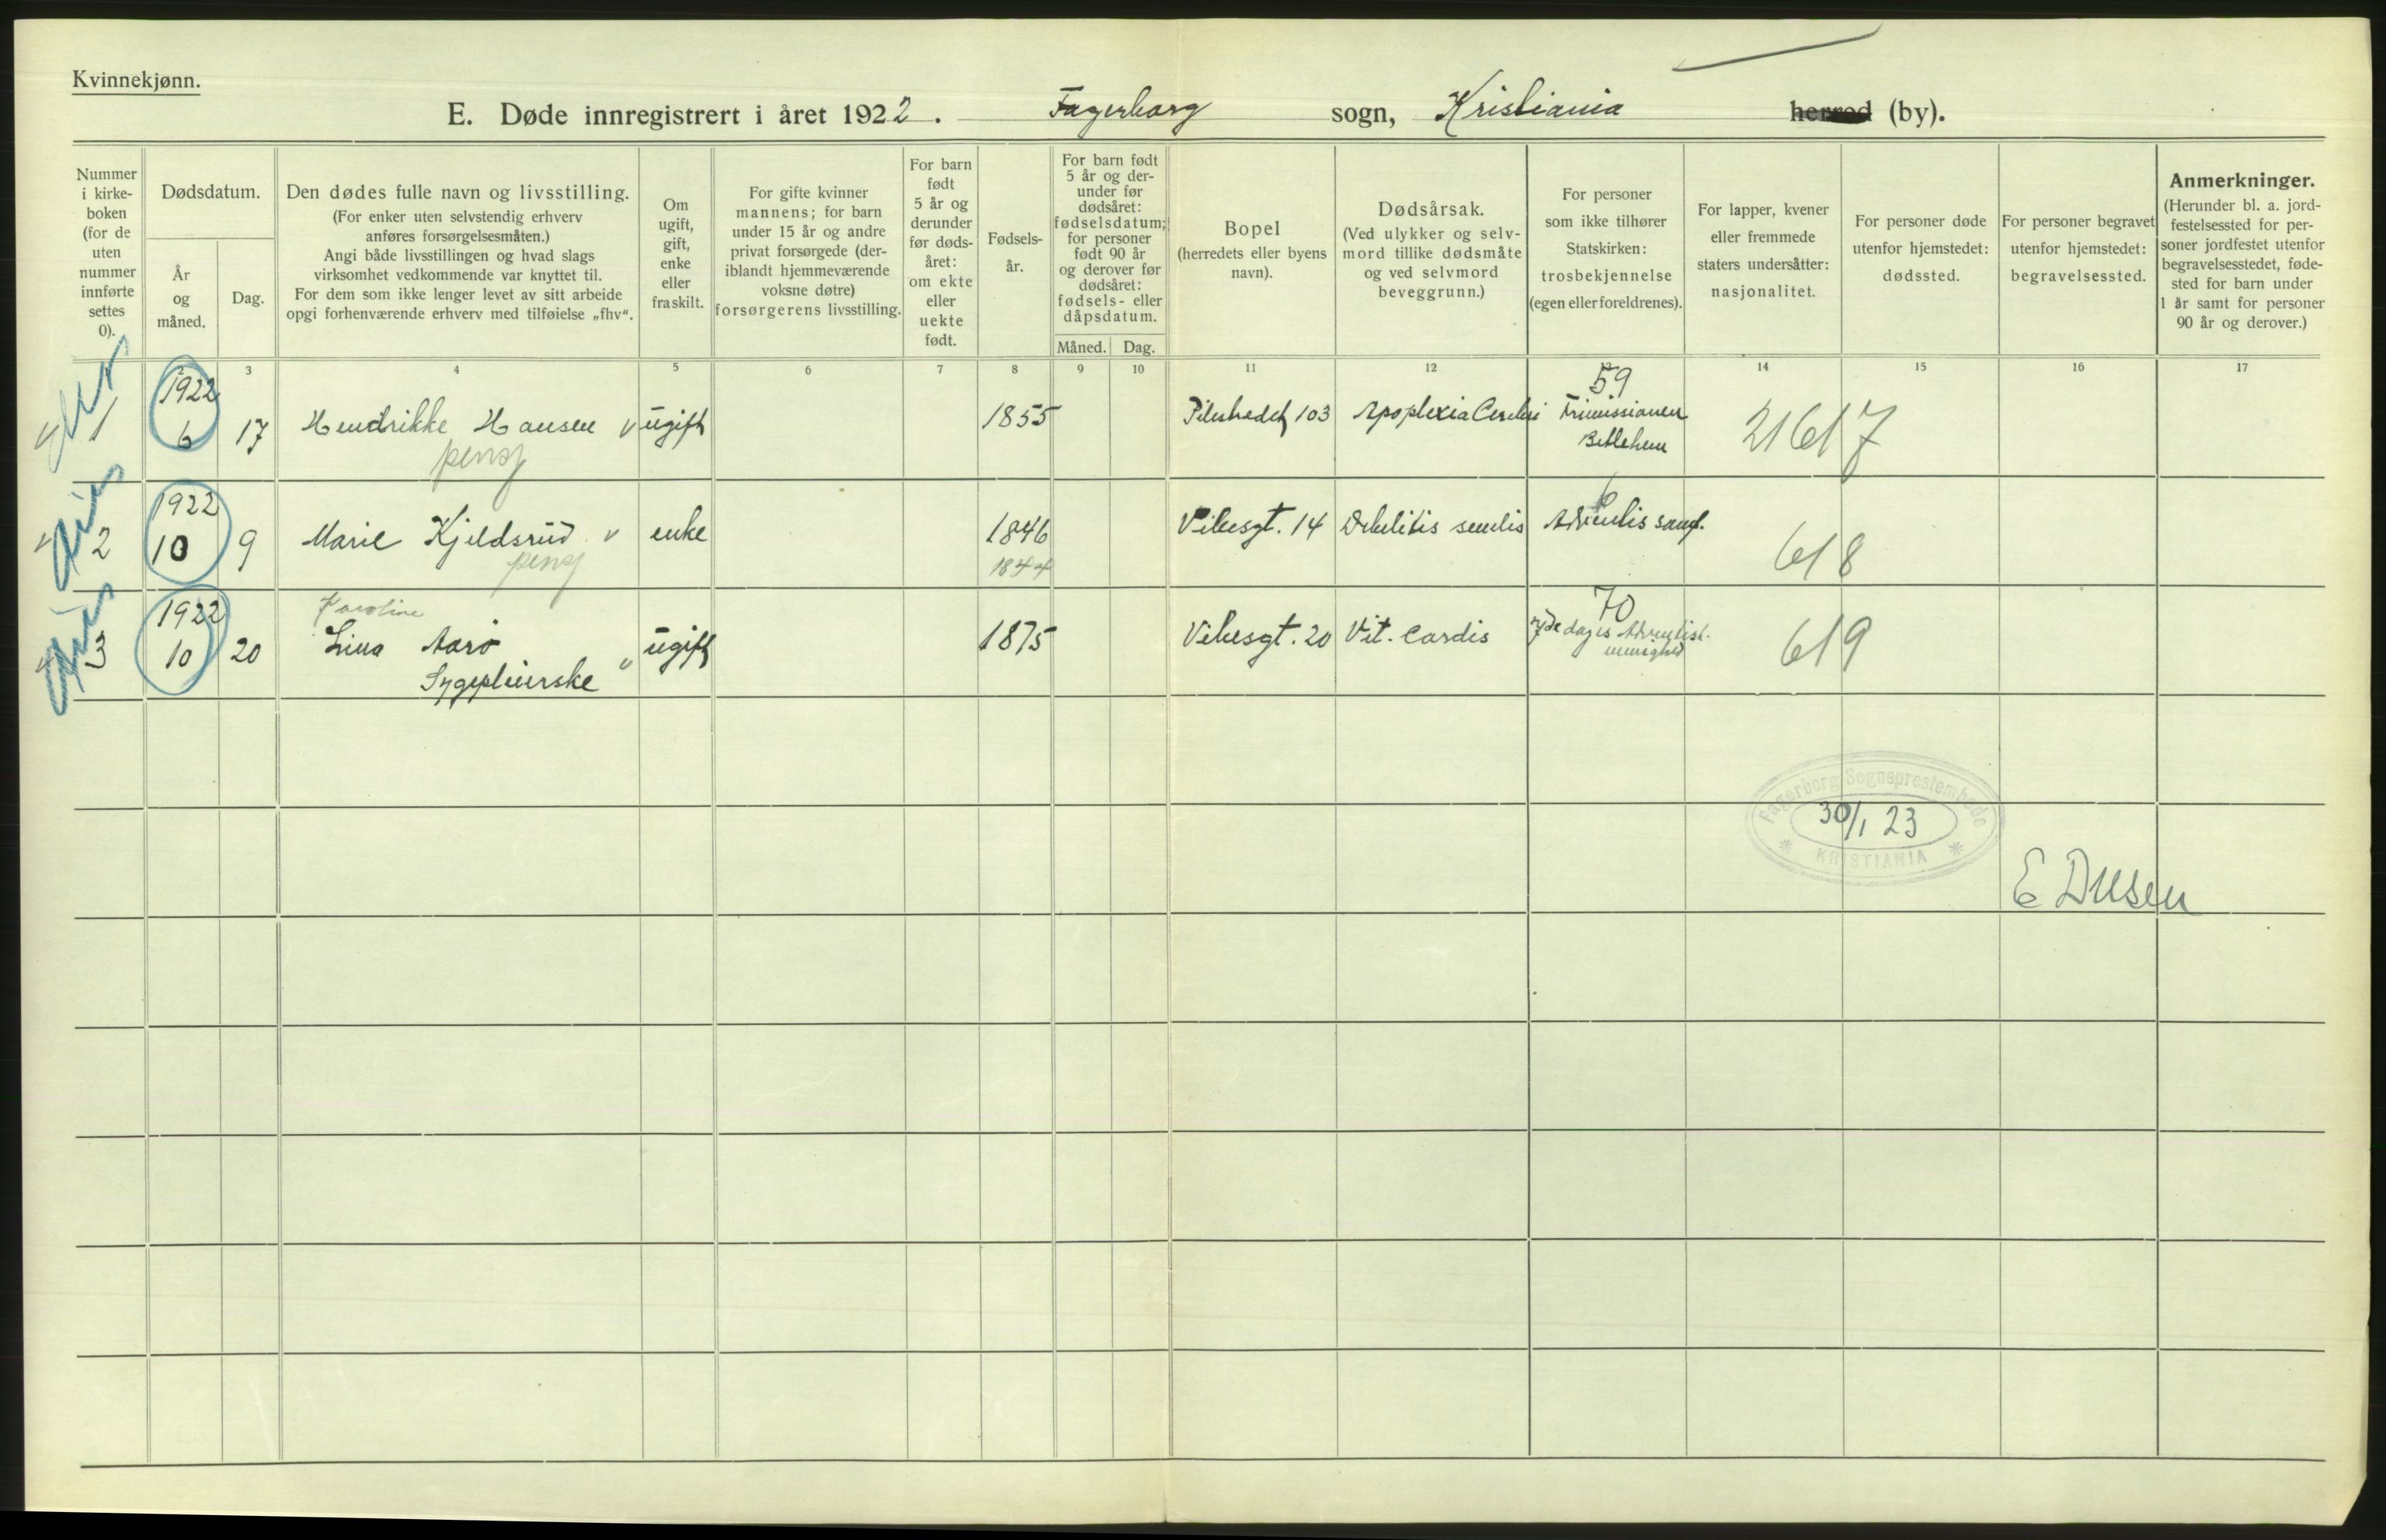 Kvinnekjønn.
E. Døde innregistrert i året 1922. Fagerborg sogn, Kristiania herred (by).
Nummer i kirke- boken (for de uten nummer innførte settes 0).
Dødsdatum.
År og måned.
Dag.
Den dødes fulle navn og livsstilling.
(For enker uten selvstendig erhverv
anføres forsørgelsesmåten.)
Angi både livsstillingen og hvad slags
virksomhet vedkommende var knyttet til.
For dem som ikke lenger levet av sitt arbeide
opgi forhenværende erhverv med tilføielse „fhv“.
Om ugift, gift, enke eller fraskilt.
For gifte kvinner
mannens; for barn
under 15 år og andre
privat forsørgede (der-
iblandt hjemmeværende
voksne døtre)
forsørgerens livsstilling.
For barn
født
5 år og
derunder
før døds-
året:
om ekte
eller
uekte
født.
Fødsels-
år.
For barn født
5 år og der-
under før
dødsåret:
fødselsdatum;
for personer
født 90 år
og derover før
dødsåret:
fødsels- eller
dåpsdatum.
Måned. Dag.
Bopel
(herredets eller byens
navn).
Dødsårsak.
(Ved ulykker og selv-
mord tillike dødsmåte
og ved selvmord
beveggrunn.)
For personer
som ikke tilhører
Statskirken:
trosbekjennelse
(egen eller foreldrenes).
For lapper, kvener
eller fremmede
staters undersåtter:
nasjonalitet.
For personer døde
utenfor hjemstedet:
dødssted.
For personer begravet
utenfor hjemstedet:
begravelsessted.
Anmerkninger.
(Herunder bl. a. jord-
festelsessted for per-
soner jordfestet utenfor
begravelsesstedet, føde-
sted for barn under
1 år samt for personer
90 år og derover.)
2 3 4 5 6 7 8 9 10 11 12 14 15 16 17
1 1922 6 17 Hendrikke Hansen ugift 1855 Pilestredet 103 Apoplexia Cerebri 59 Frimissionen Betlehem 21617
pens
2 1922 10 9 Marie Kjeldsrud enke 1846 Vibesgt. 14 Debilitis senilis 6 Adventis samf. 618
pens 1844
Karoline
3 1922 10 20 Lina Aarø ugift 1875 Vibesgt. 20 Vit. Cordis 70 7de dages Adventist. menighed 619
Sygepleierske
Fagerborg Sogneprestembede
30/1 23
KRISTIANIA
E Dusen